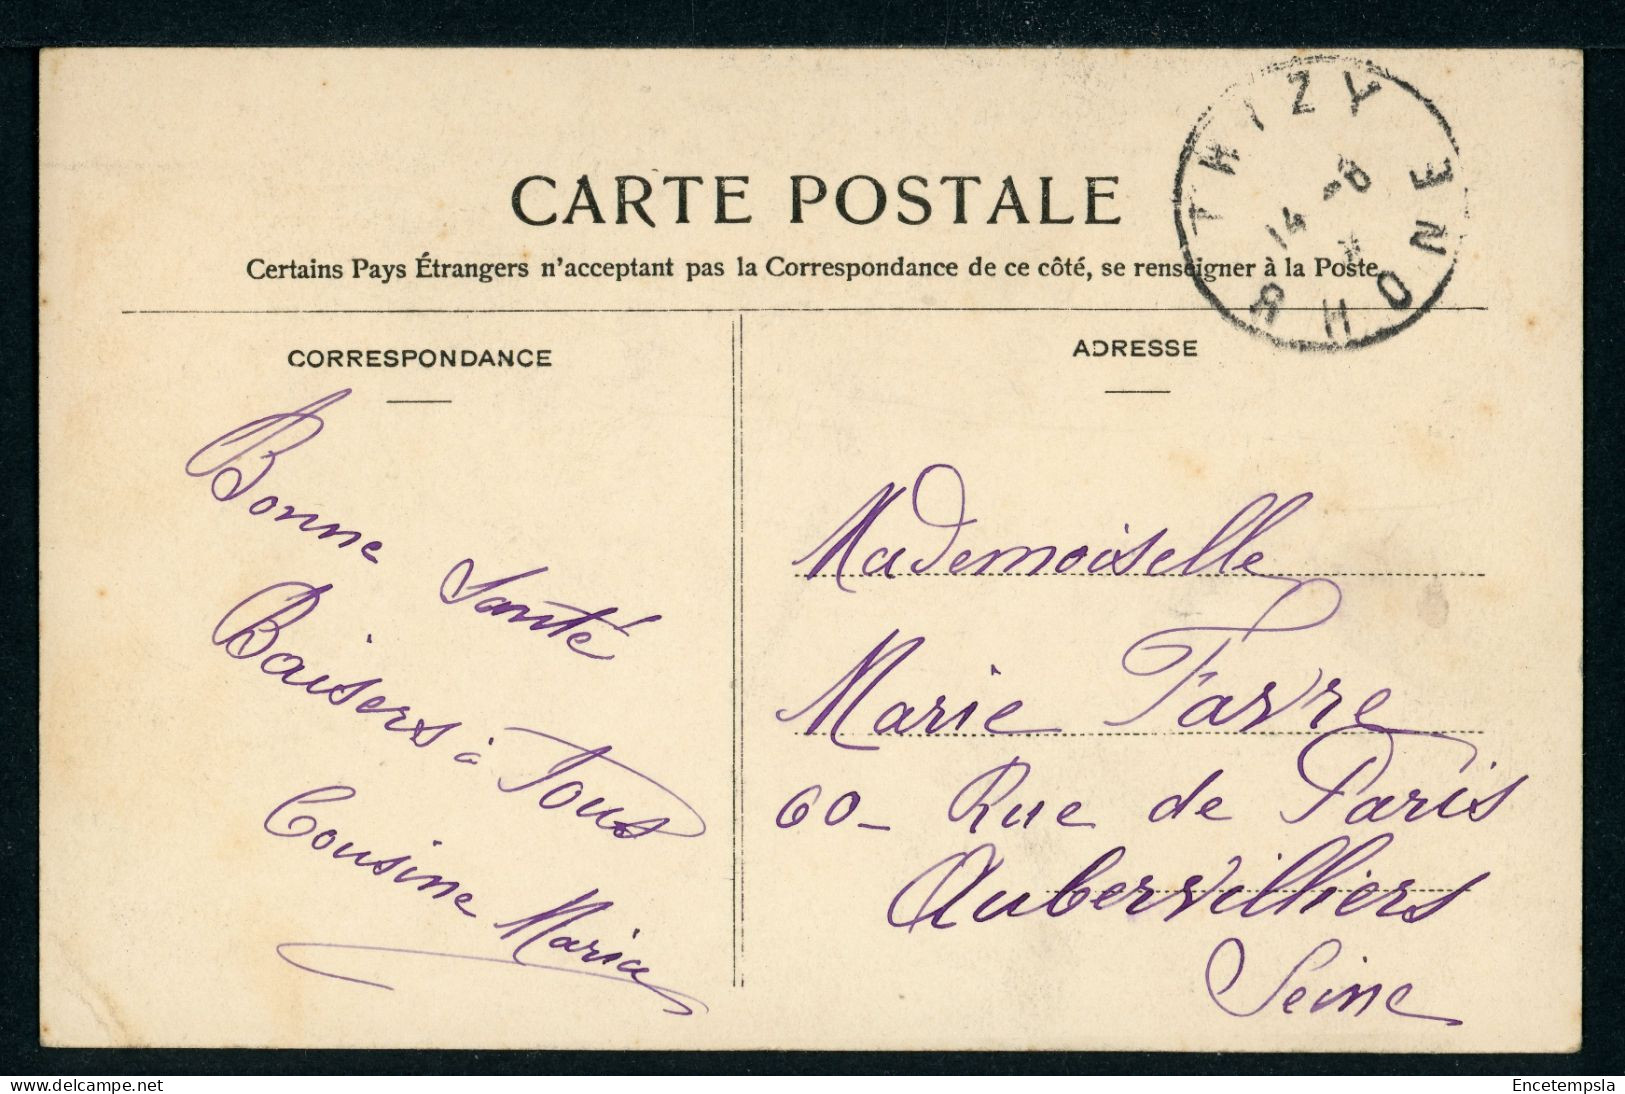 CARTE POSTALE
Certains Pays Étrangers n'acceptant pas la Correspondance de ce côté, se renseigner à la Poste.
THIZY
14 -8
RHONE
CORRESPONDANCE
Bonne Santé
Baisers à Tous
Cousine Maria
ADRESSE
Mademoiselle
Marie Favre
60 - Rue de Paris
Aubervilliers
Seine
www.delcampe.net
Encetempsla